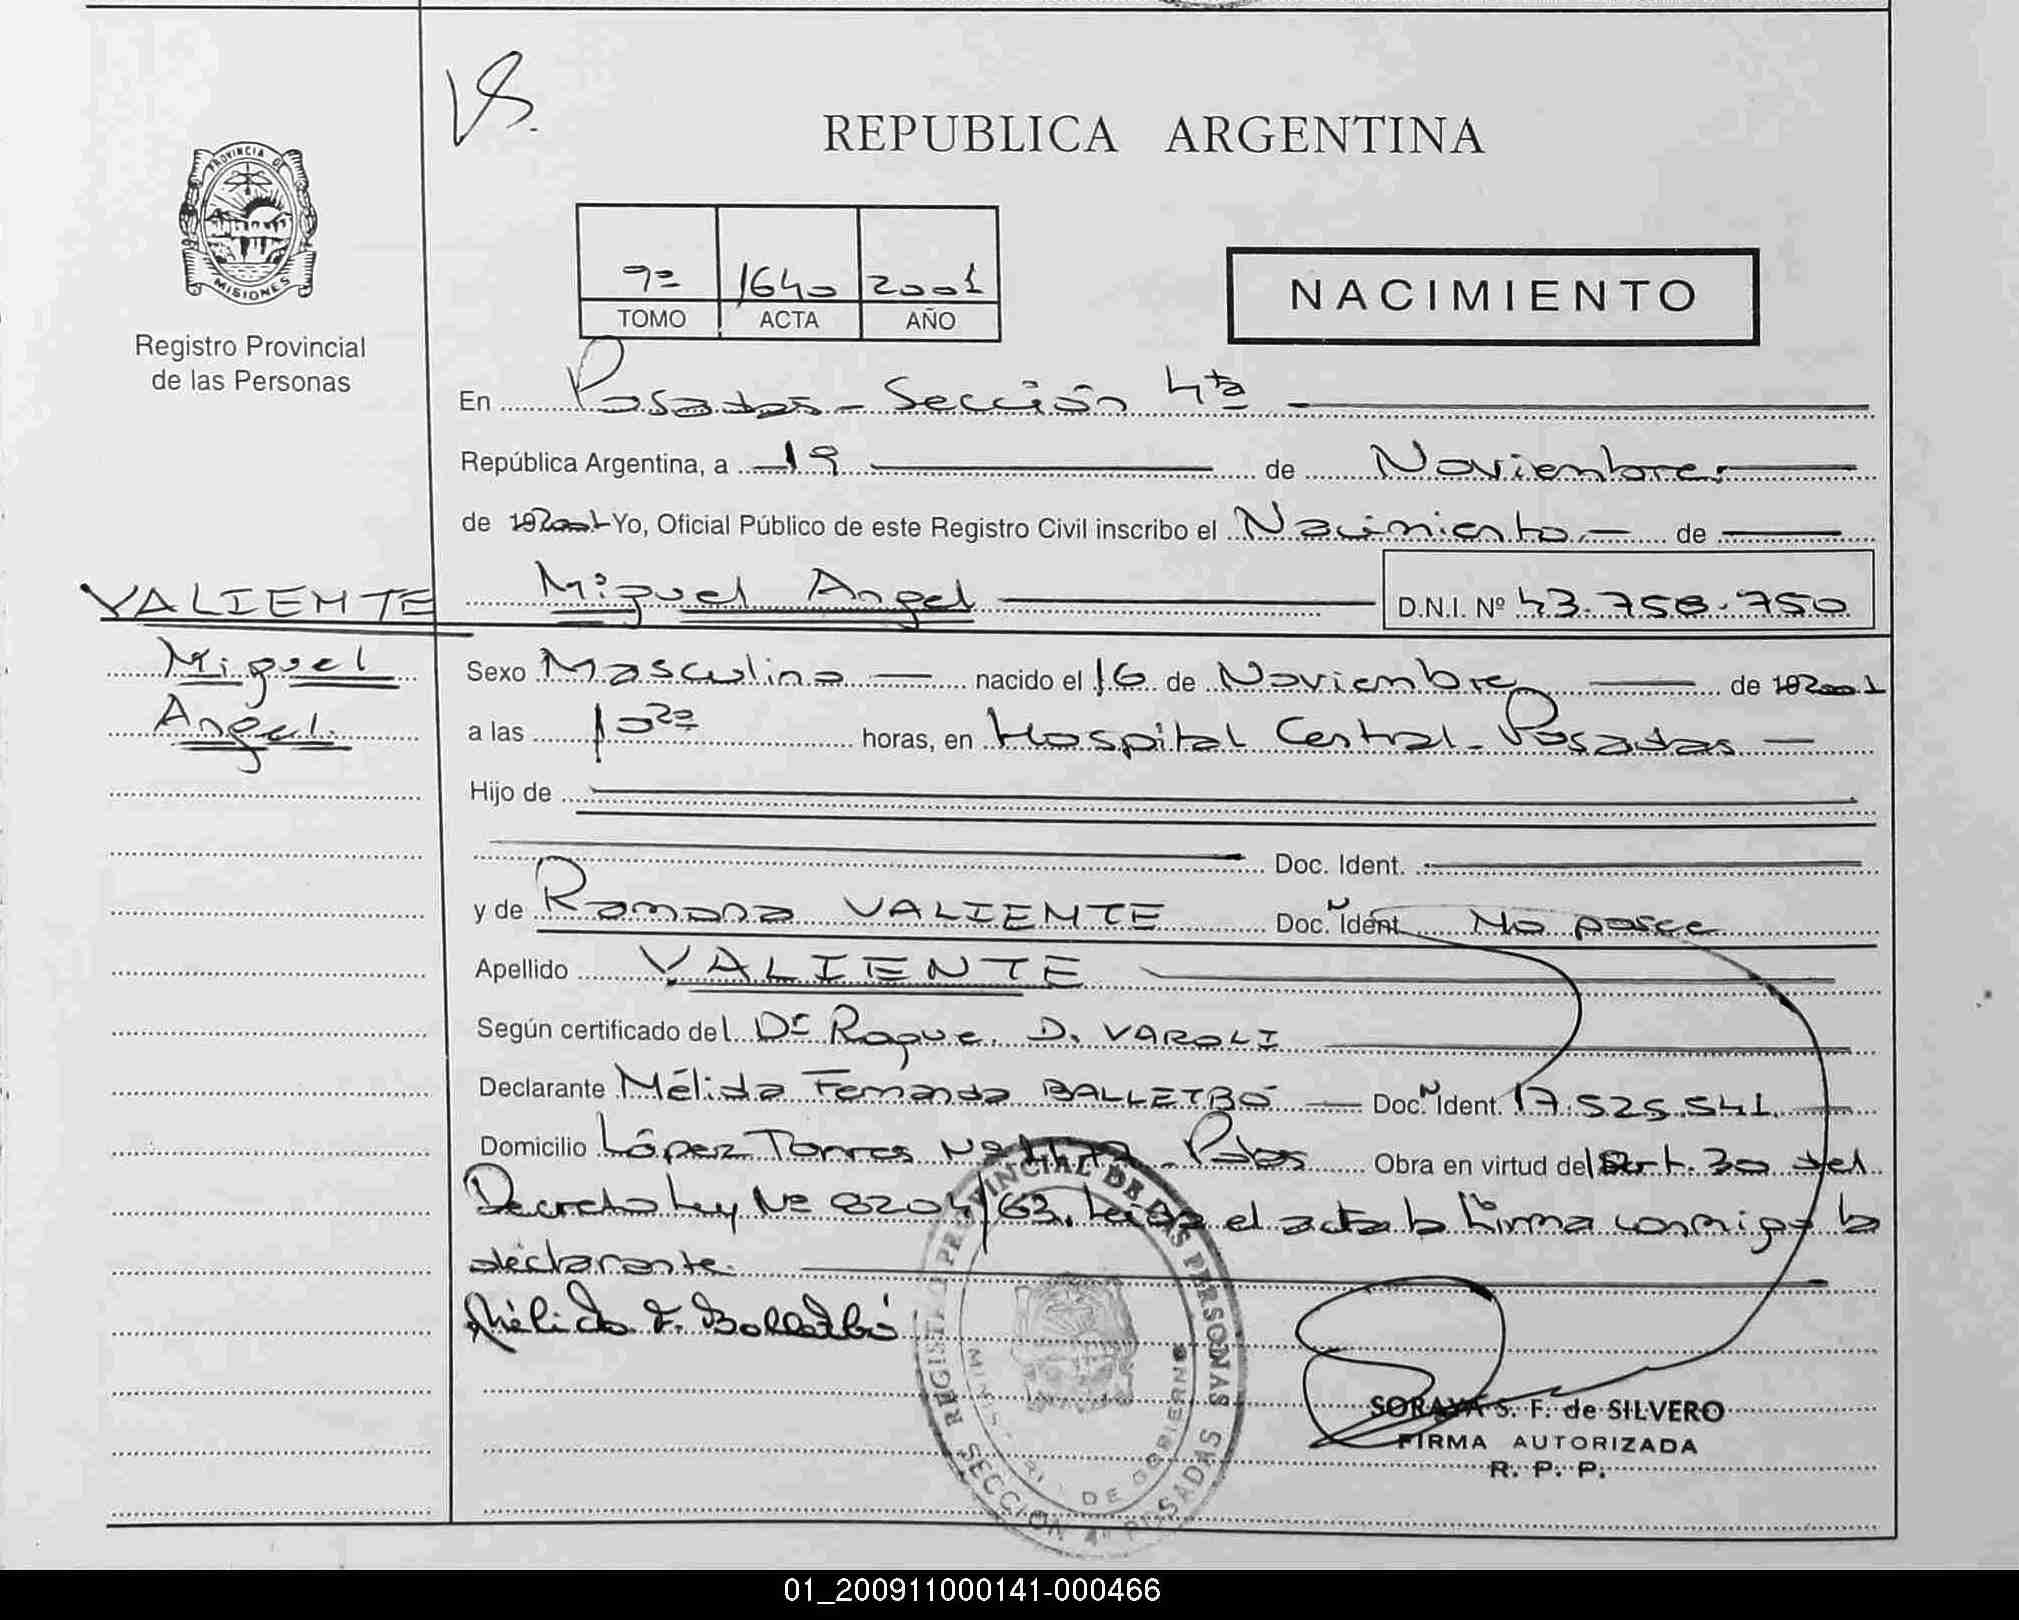 VS.
REPUBLICA ARGENTINA
PROVINCIA DE
MISIONES
Registro Provincial
de las Personas
9º 1640 2001
TOMO ACTA AÑO
NACIMIENTO
En Posadas - Sección 4ta
República Argentina, a 19 de Noviembre
de 192001 Yo, Oficial Público de este Registro Civil inscribo el Nacimiento de
VALIENTE Miguel Angel D.N.I. Nº 43.758.750
Miguel
Angel
Sexo Masculino nacido el 16 de Noviembre de 192001
a las 10 horas, en Hospital Central - Posadas
Hijo de
Doc. Ident.
y de Ramona VALIENTE Doc. Ident. No posee
Apellido VALIENTE
Según certificado del Dr Roque D. VAROLI
Declarante Mélida Fernanda BALLETBÓ Doc. Ident. 17.525.541
Domicilio López Torres Nº - Pdas Obra en virtud del Art. 30 del
Decreto Ley Nº 8204/63. Leída el acta la firma conmigo la
declarante.
Mélida F. Balletbó
REGISTRO PROVINCIAL DE LAS PERSONAS
DE GOBIERNO
SECCION 4º POSADAS
SORAYA S. F. de SILVERO
FIRMA AUTORIZADA
R. P. P.
01_200911000141-000466